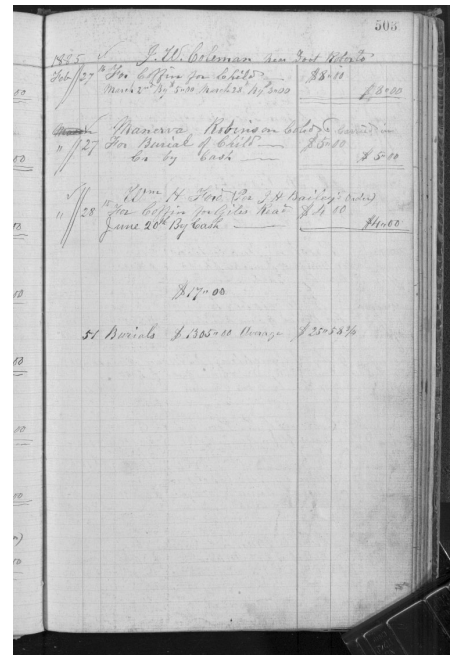 503
1885 J. W. Coleman
Feb 27 For Coffin for Child $8-00
March 2nd By $5-00 March 28 By 3-00 $8-00
Manerva Robinson Cold
" 27 For Burial of Child $5-00
Cr by Cash $5-00
Wm H. (Per J H Bailey's order)
" 28 For Coffin for Giles $4 00
June 20th By Cash $4-00
$17-00
51 Burials $1305-00 Average $25-58